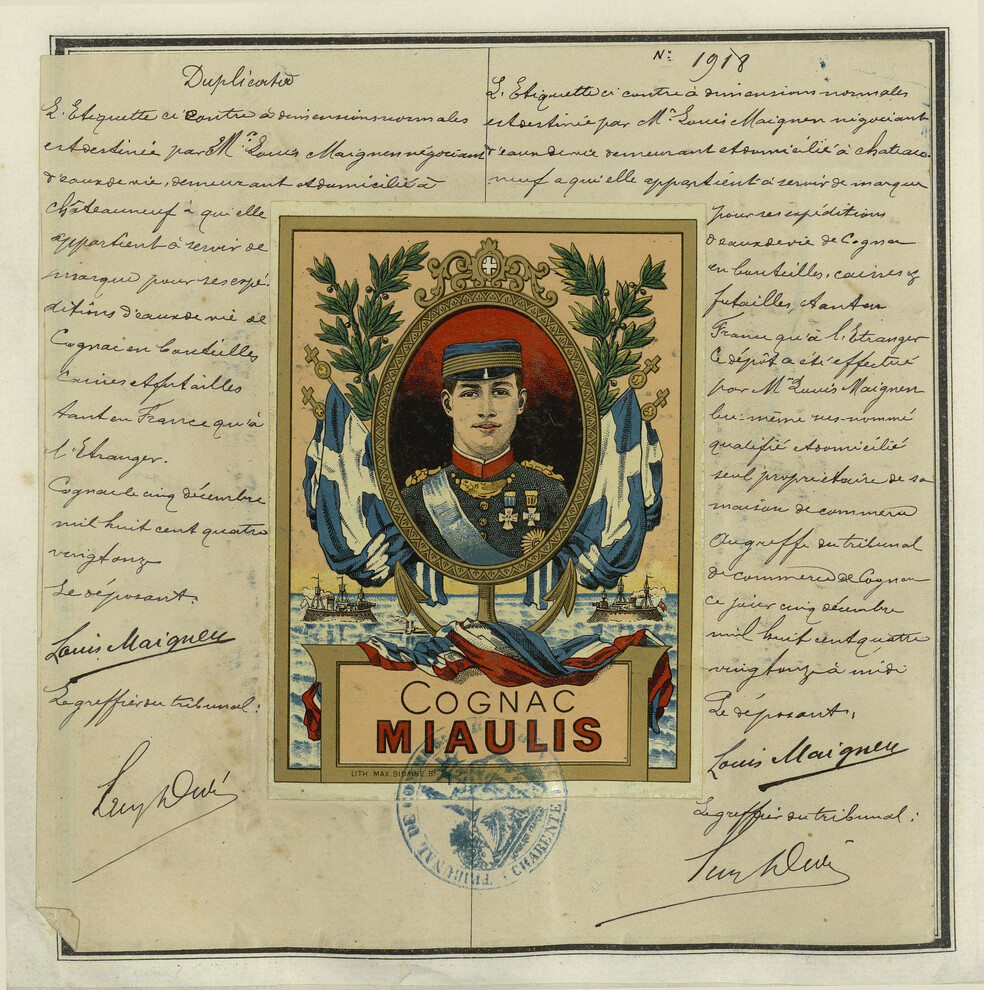 Duplicata
L'Etiquette ci contre à dimensions normales
est destinée par M.r Louis Maignen négociant
d'eaux de vie, demeurant et domicilié à
Châteauneuf à qui elle
appartient à servir de
marque pour ses expé-
ditions d'eaux de vie de
Cognac en bouteilles
Caisses et futailles
tant en France qu'à
l'Etranger.
Cognac le cinq décembre
mil huit cent quatre
vingt onze
Le déposant.
Louis Maignen
Le greffier du tribunal:
N.o 1918
L'Etiquette ci contre à dimensions normales
est destinée par M.r Louis Maignen négociant
d'eaux de vie demeurant et domicilié à Chateau-
neuf a qui elle appartient à servir de marque
pour ses expéditions
d'eaux de vie de Cognac
en bouteilles, caisses &
futailles, tant en
France qu'à l'Etranger
Ce dépôt a été effectué
par M.r Louis Maignen
lui-même sus-nommé
qualifié et domicilié
seul propriétaire de sa
maison de commerce
Au greffe du tribunal
de commerce de Cognac
ce jour cinq décembre
mil huit cent quatre
vingt onze à midi
Le déposant:
Louis Maignen
Le greffier du tribunal:
COGNAC
MIAULIS
LITH. MAX. SIDAINE. B
TRIBUNAL DE CHARENTE